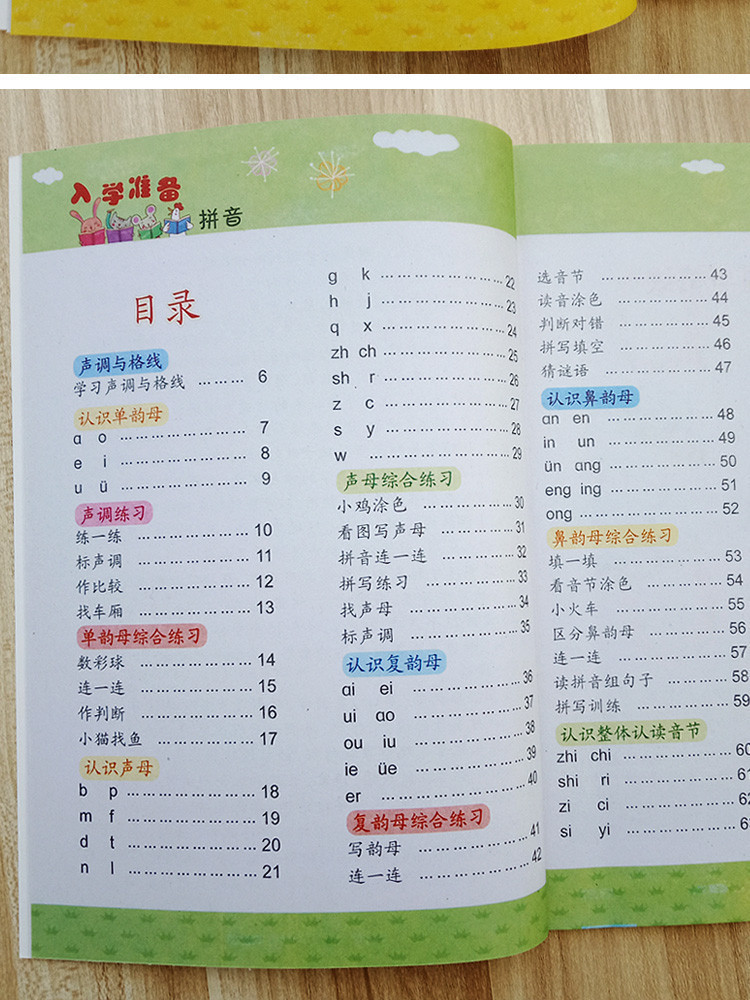 入学准备
拼音
目录
声调与格线
学习声调与格线 ……… 6
认识单韵母
ɑ o ………………… 7
e i ………………… 8
u ü ………………… 9
声调练习
练一练 ……………… 10
标声调 ……………… 11
作比较 ……………… 12
找车厢 ……………… 13
单韵母综合练习
数彩球 ……………… 14
连一连 ……………… 15
作判断 ……………… 16
小猫找鱼 …………… 17
认识声母
b p ………………… 18
m f ………………… 19
d t ………………… 20
n l ………………… 21
g k ………………… 22
h j ………………… 23
q x ………………… 24
zh ch ……………… 25
sh r ……………… 26
z c ………………… 27
s y ………………… 28
w ………………… 29
声母综合练习
小鸡涂色 …………… 30
看图写声母 ………… 31
拼音连一连 ………… 32
拼写练习 …………… 33
找声母 ……………… 34
标声调 ……………… 35
认识复韵母
ɑi ei ……………… 36
ui ɑo ……………… 37
ou iu ……………… 38
ie üe ……………… 39
er ………………… 40
复韵母综合练习
写韵母 ……………… 41
连一连 ……………… 42
选音节 ……………… 43
读音涂色 …………… 44
判断对错 …………… 45
拼写填空 …………… 46
猜谜语 ……………… 47
认识鼻韵母
ɑn en ……………… 48
in un ……………… 49
ün ɑng …………… 50
eng ing …………… 51
ong ……………… 52
鼻韵母综合练习
填一填 ……………… 53
看音节涂色 ………… 54
小火车 ……………… 55
区分鼻韵母 ………… 56
连一连 ……………… 57
读拼音组句子 ……… 58
拼写训练 …………… 59
认识整体认读音节
zhi chi …………… 60
shi ri ……………
zi ci ……………
si yi ……………